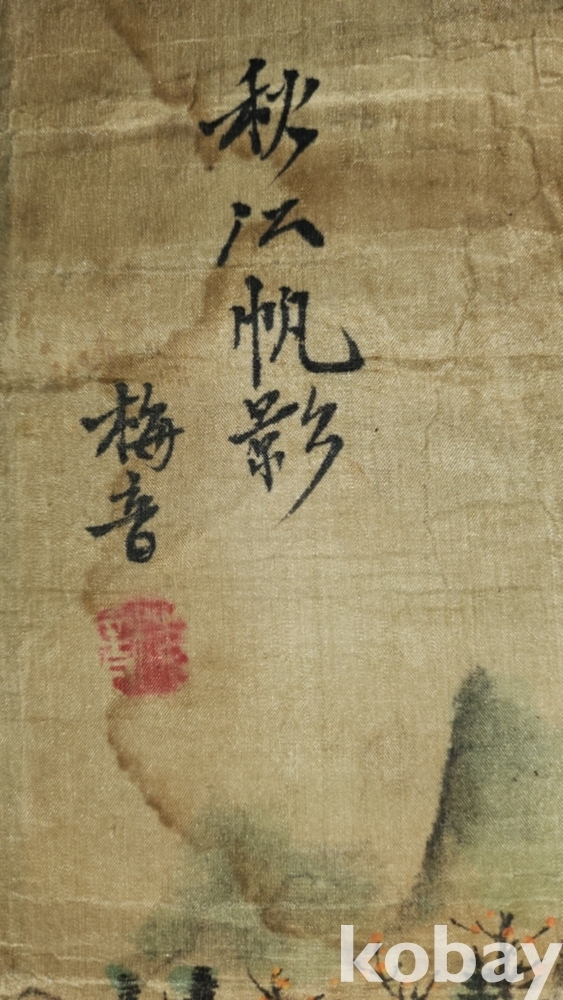 秋江帆影
梅音
kobay